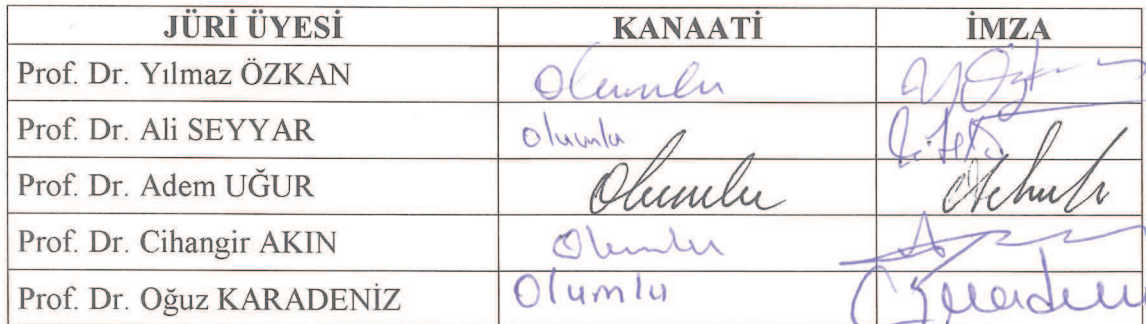 JÜRİ ÜYESİ KANAATİ İMZA
Prof. Dr. Yılmaz ÖZKAN Olumlu
Prof. Dr. Ali SEYYAR olumlu
Prof. Dr. Adem UĞUR Olumlu
Prof. Dr. Cihangir AKIN Olumlu
Prof. Dr. Oğuz KARADENİZ Olumlu